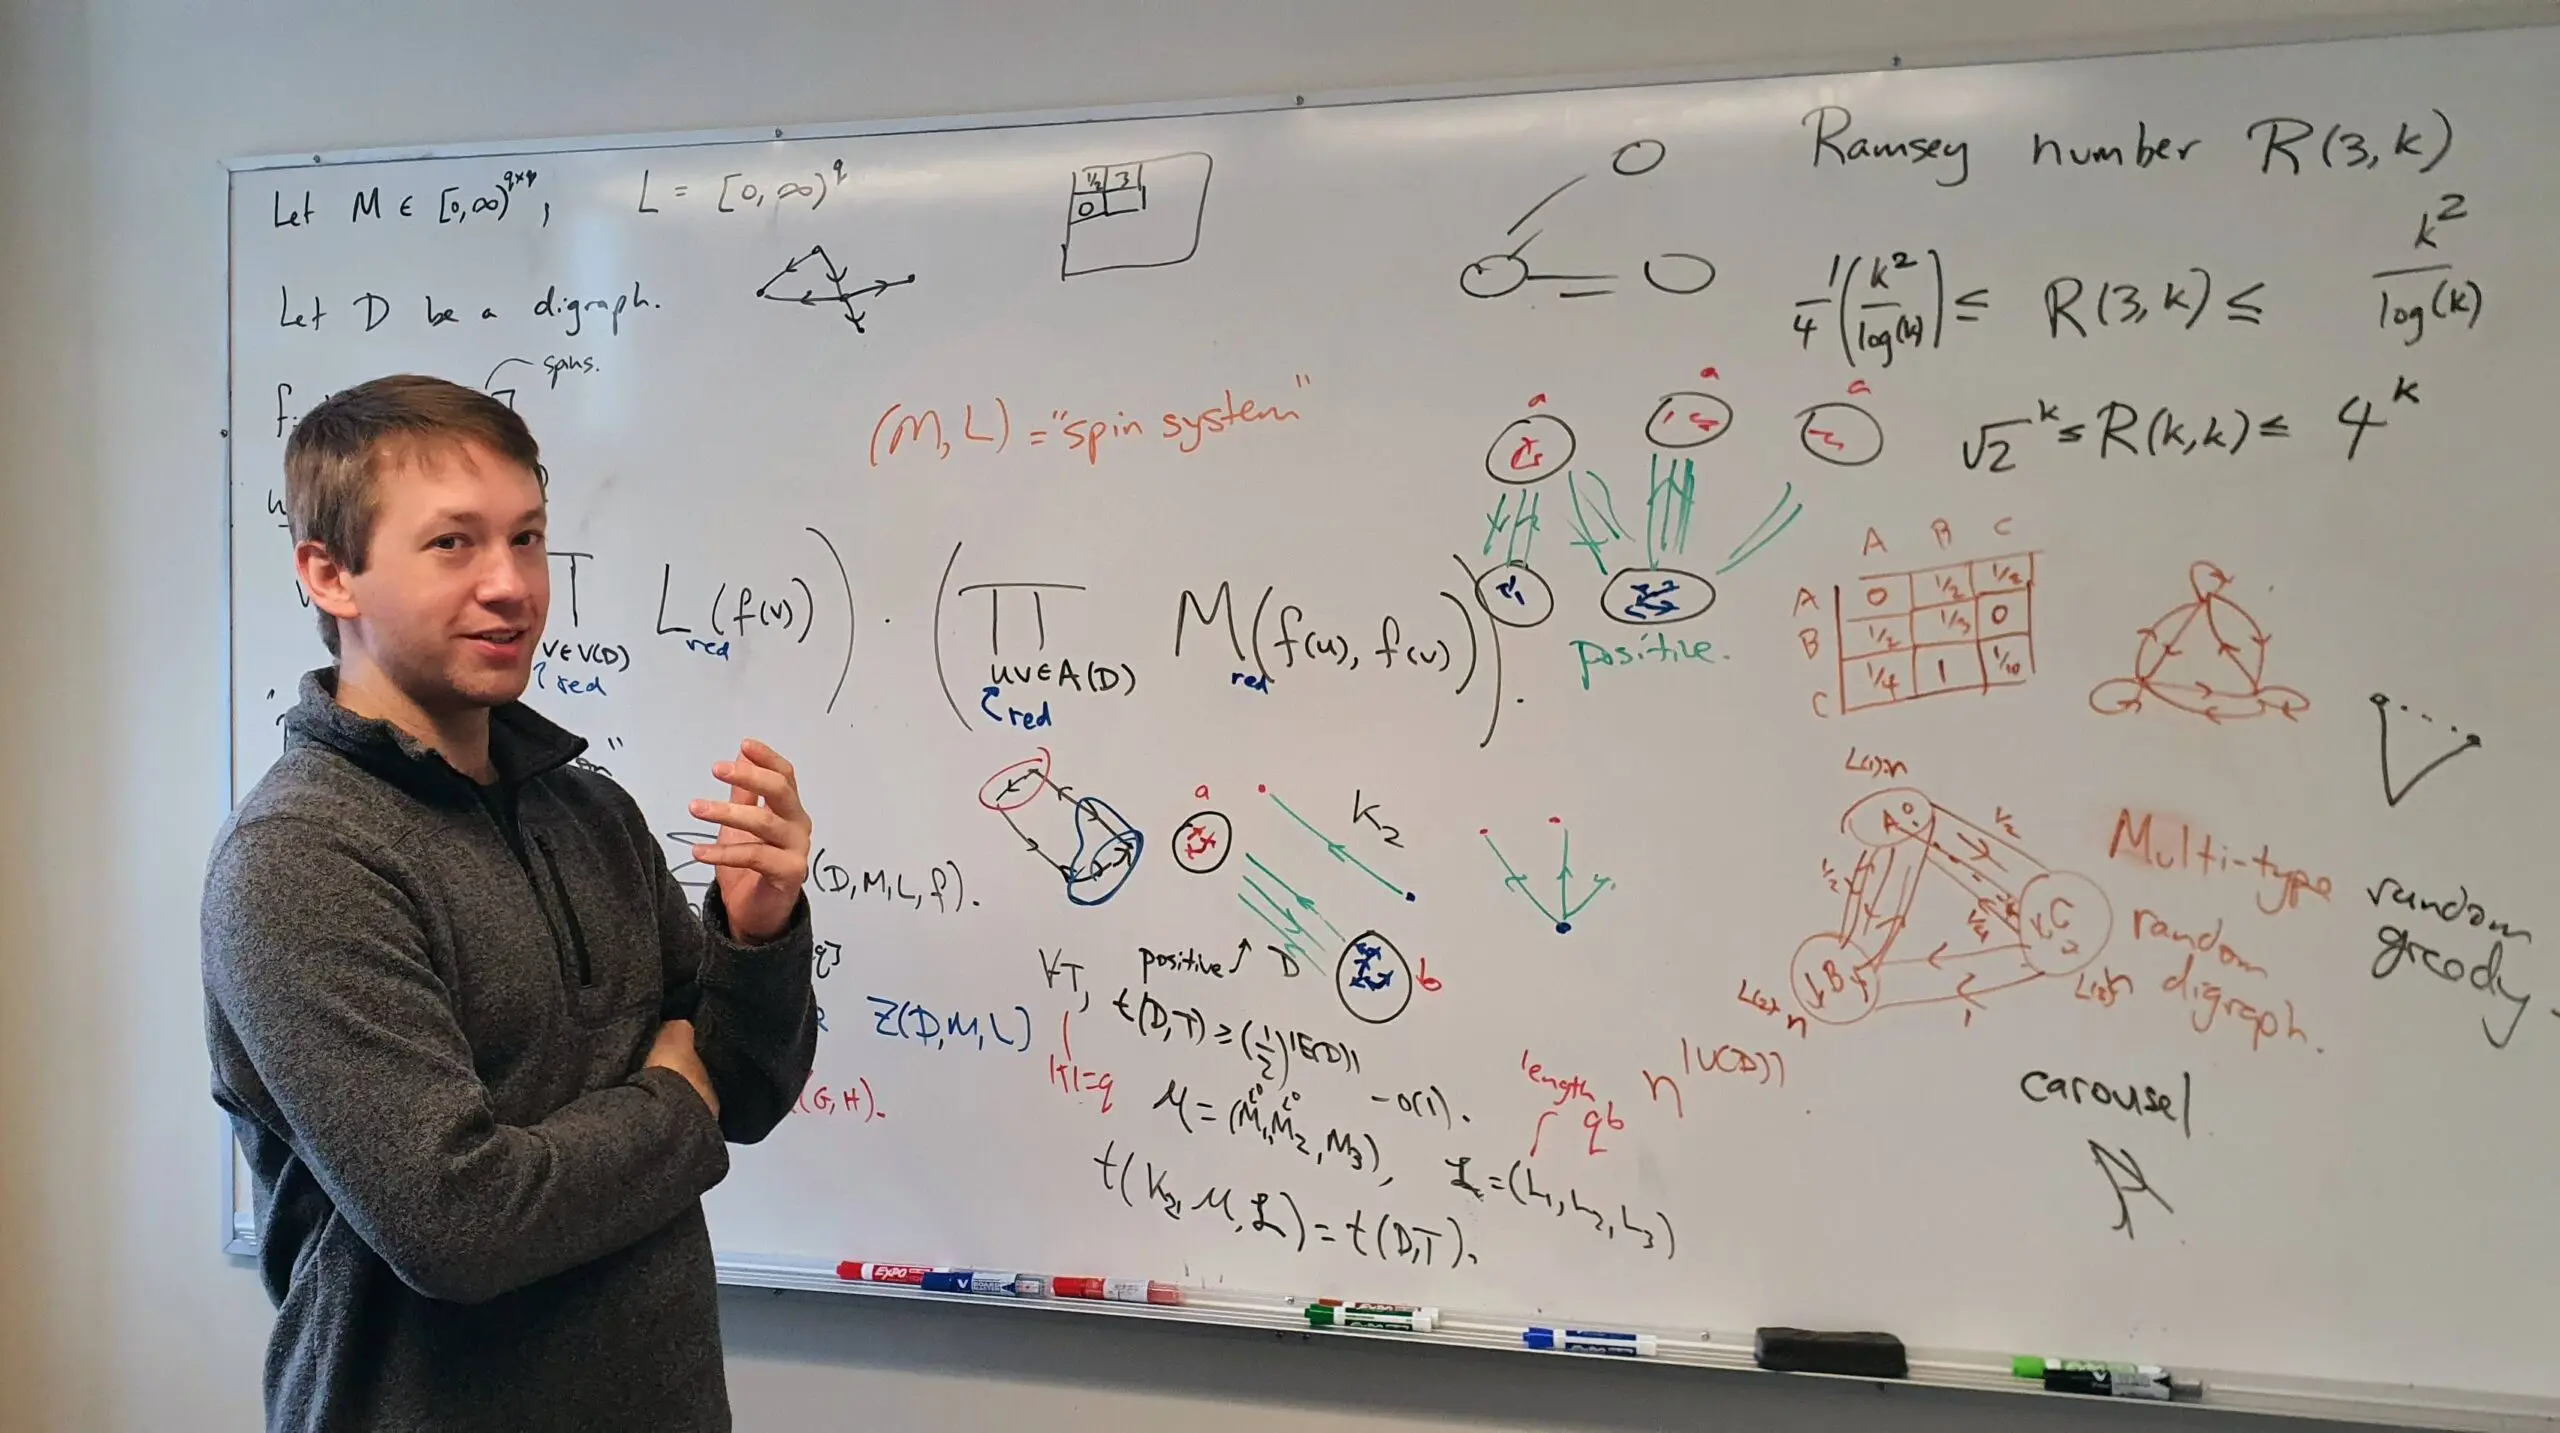 Let M ∈ [0,∞)^{q×q}, L = [0,∞)^q
1/2 3
0
Let D be a digraph.
spins.
(M, L) = "spin system"
L_red (f(v))) · (∏ M_red (f(u), f(v))).
v∈V(D)
red
uv∈A(D)
red
(D, M, L, f).
Z(D, M, L)
(G, H).
a
K₂
b
positive ↑ D
∀T,
|T|=q
t(D,T) ≥ (1/2)^{|E(D)|}
-o(1).
M = (M₁, M₂, M₃),
length
qb
ℒ = (L₁, L₂, L₃)
t(K₂, M, ℒ) = t(D,T).
n^{|V(D)|}
Ramsey number R(3, k)
1/4 (k²/log(k)) ≤ R(3, k) ≤ k²/log(k)
√2^k ≤ R(k, k) ≤ 4^k
a a a
positive.
A B C
A 0 1/2 1/2
B 1/2 1/3 0
C 1/4 1 1/10
L(1)·n
A
1/2
1/2
1/4
C
B
L(2)·n
1
Multi-type
random
digraph.
random
greedy.
carousel
EXPO